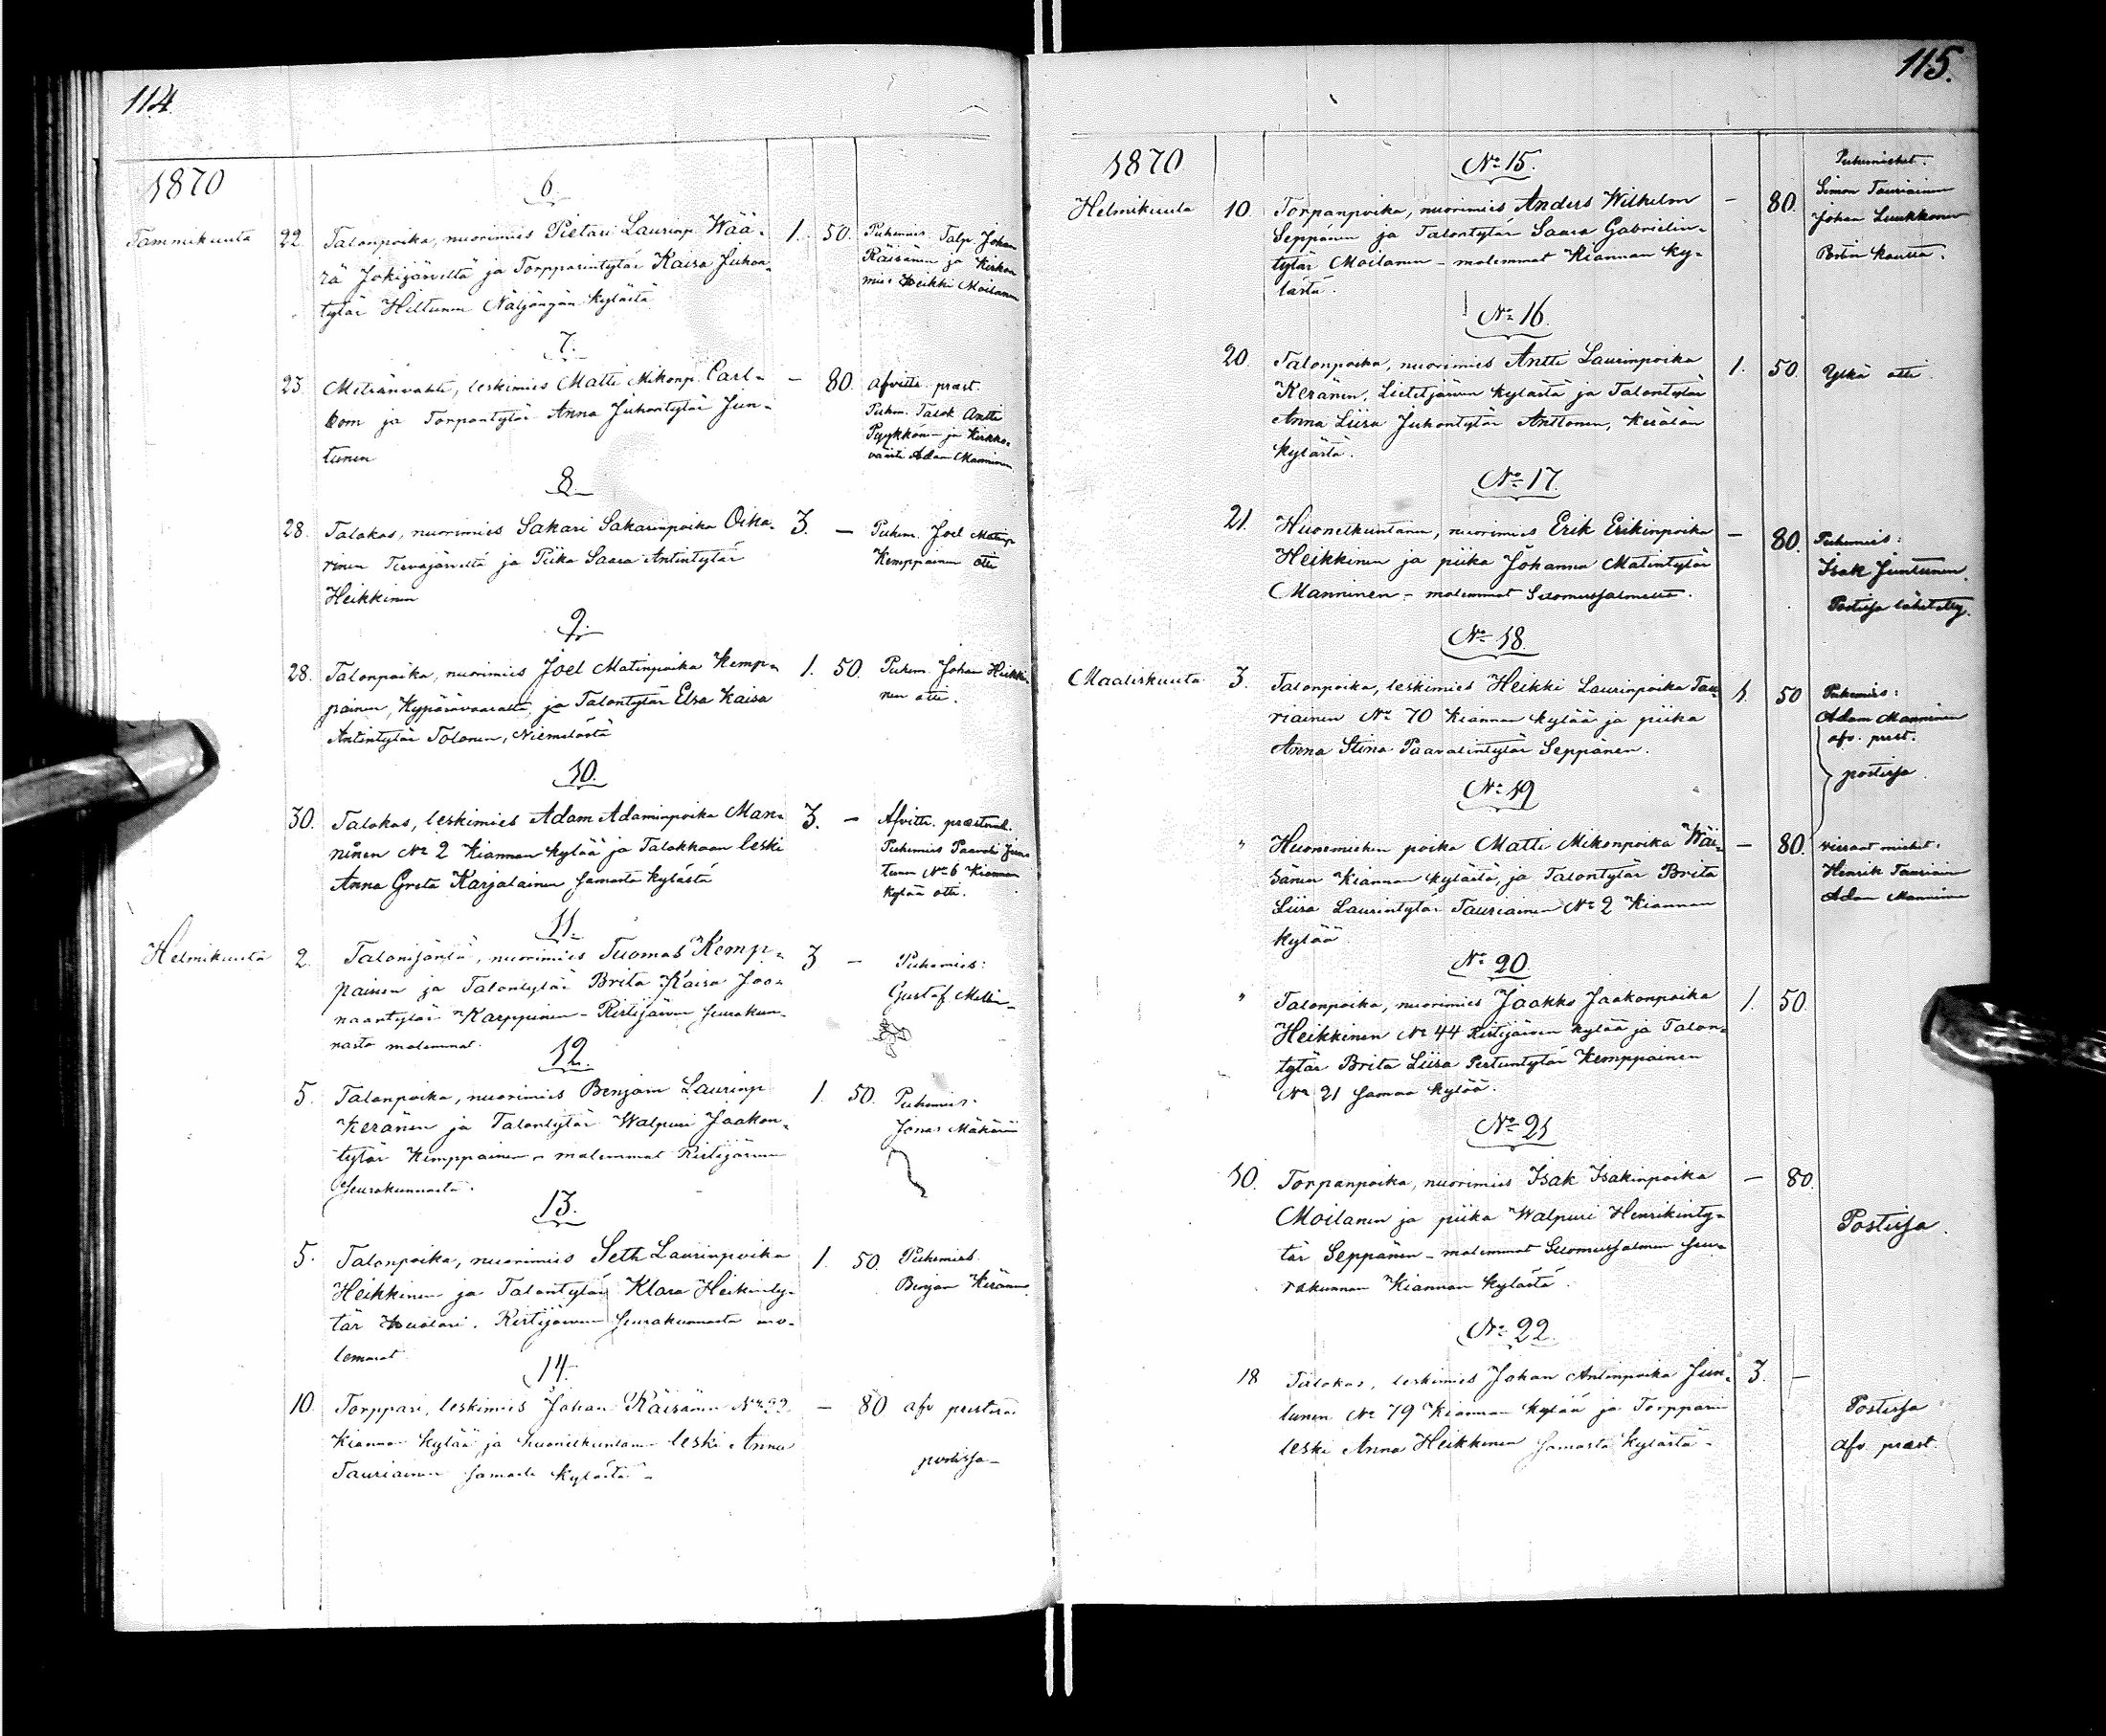 114.
1870
6.
Tammikuuta 22. Talonpoika, nuorimies Pietari Laurinp. Wää- 1. 50. Puhemies Talp. Johan
rä Jokijärveltä ja Torpparintytär Kaisa Juhon- Räisänen ja Kirkon
tytär Hiltunen Näljängän kylästä mies Heikki Moilanen
7.
23. Metsänvahti, leskimies Matti Mikonp. Carl- — 80. afvittr. præst.
bom ja Torpantytär Anna Juhontytär Jun- Puhm. Talok Antti
tunen Pyykkön- ja Kirkko-
väärti Adam Manninen
8.
28. Talokas, nuorimies Sakari Sakarinpoika Oika- 3. — Puhem. Joel Matinp
rinen Tervajärveltä ja Piika Saara Antintytär Kemppainen otti
Heikkinen
9.
28. Talonpoika, nuorimies Joel Matinpoika Kemp- 1. 50. Puhem. Johan Heikki-
painen, Hyppärävaaralta, ja Talontytär Elsa Kaisa nen otti.
Antintytär Tolonen, Niemelästä
10.
30. Talokas, leskimies Adam Adaminpoika Man- 3. — Afvittr. præsterad.
ninen No 2 Kiannan kylää ja Talokkaan leski Puhemies Paavali Jun-
Anna Greta Karjalainen samasta kylästä tunen No 6 Kiannan
kylää otti.
11.
Helmikuuta 2. Talonisäntä, nuorimies Tuomas Kemp- 3 — Puhemies:
painen ja Talontytär Brita Kaisa Joo- Gustaf
naantytär Karppinen - Ristijärven seurakun-
nasta molemmat.
12.
5. Talonpoika, nuorimies Benjam Laurinp 1. 50. Puhemies:
Keränen ja Talontytär Walpuri Jaakon- Jonas
tytär Kemppainen - molemmat Ristijärven
seurakunnasta.
13.
5. Talonpoika, nuorimies Seth Laurinpoika 1. 50. Puhemies
Heikkinen ja Talontytär Klara Heikinty- Benjam Keränen
tär . Ristijärven seurakunnasta mo-
lemmat
14.
10. Torppari, leskimies Johan Räisänen No 99. — 80 afv presterad
Kiannan kylää ja huoneekuntam- leski Anna
Tauriainen samasta kylästä - postissa -
115.
1870
No 15. Puhemiehet.
Helmikuuta 10. Torpanpoika, nuorimies Anders Wilhelm — 80. Simon Tauriainen
Seppänen ja Talontytär Saara Gabrielin- Johan Luukkonen
tytär Moilanen - molemmat Kiannan ky- Postin kautta.
lästä.
No 16.
20. Talonpoika, nuorimies Antti Laurinpoika 1. 50. Ylkä otti
Keränen, kylästä ja Talontytär
Anna Liisa Juhontytär Anttonen, Kerälän
kylästä.
No 17.
21. Huoneekuntanen, nuorimies Erik Erikinpoika — 80. Puhemies:
Heikkinen ja piika Johanna Matintytär Isak Juntunen.
Manninen - molemmat Suomussalmelta. Postissa lähetetty.
No 18.
Maaliskuuta 3. Talonpoika, leskimies Heikki Laurinpoika Tau- 1. 50 Puhemies:
riainen No 70 Kiannan kylää ja piika Adam Manninen
Anna Stina Paavalintytär Seppänen. afv. prest.
postissa.
No 19
" Huonemiehen poika Matti Mikonpoika Wäi- — 80. vieraat miehet:
sänen Kiannan kylästä, ja Talontytär Brita Henrik Tauriain
Liisa Laurintytär Tauriainen No 2 Kiannan Adam Manninen
kylää
No 20
" Talonpoika, nuorimies Jaakko Jaakonpoika 1. 50.
Heikkinen No 44 Ristijärven kylää ja Talon-
tytär Brita Liisa Pertuntytär Kemppainen
No 21 samaa kylää.
No 21
10. Torpanpoika, nuorimies Isak Isakinpoika — 80.
Moilanen ja piika Walpuri Henrikinty- Postissa.
tär Seppänen - molemmat Suomussalmen seu-
rakunnan Kiannan kylästä.
No 22.
18 Talokas, leskimies Johan Antinpoika Jun- 3. —
tunen No 79 Kiannan kylää ja Torpparin Postissa
leski Anna Heikkinen samasta kylästä - afv præst.